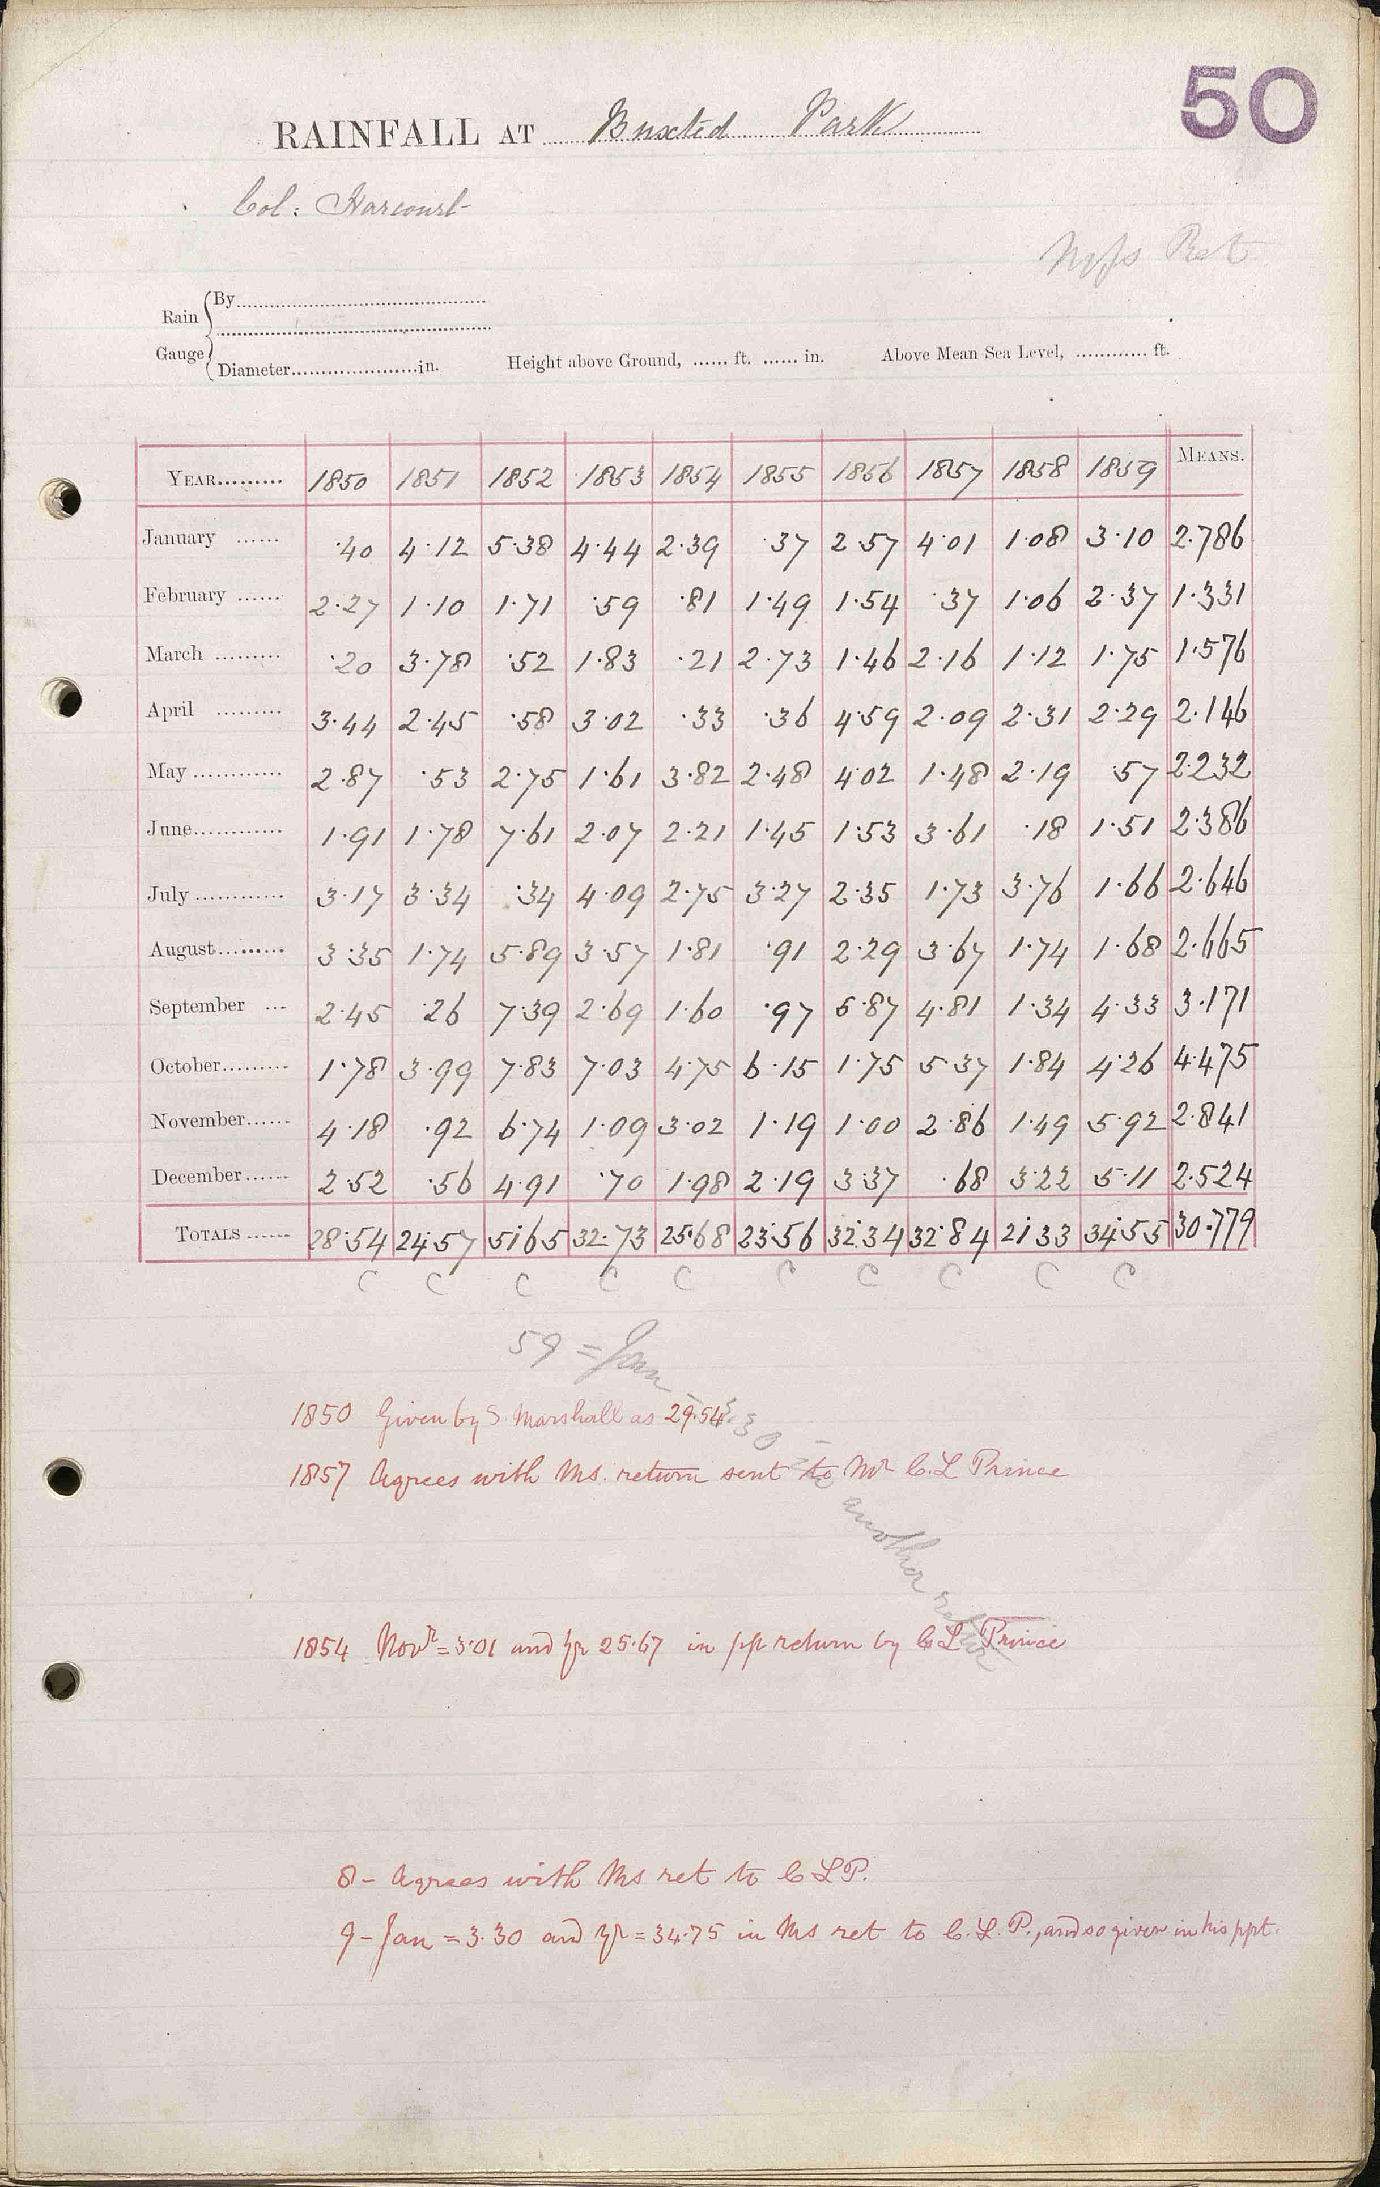 50
RAINFALL AT Buxted Park
Col: Harcourt
Rain
Gauge
By
Diameter in.
Height above Ground, ...... ft. ...... in.
Above Mean Sea Level, ............ ft.
YEAR......... 1850 1851 1852 1853 1854 1855 1856 1857 1858 1859 MEANS.
January ...... ·40 4·12 5·38 4·44 2·39 ·37 2·57 4·01 1·08 3·10 2·786
February ...... 2·27 1·10 1·71 ·59 ·81 1·49 1·54 ·37 1·06 2·37 1·331
March ......... ·20 3·78 ·52 1·83 ·21 2·73 1·46 2·16 1·12 1·75 1·576
April ......... 3·44 2·45 ·58 3·02 ·33 ·36 4·59 2·09 2·31 2·29 2·146
May ............ 2·87 ·53 2·75 1·61 3·82 2·48 4·02 1·48 2·19 ·57 2·232
June............ 1·91 1·78 7·61 2·07 2·21 1·45 1·53 3·61 ·18 1·51 2·386
July ............ 3·17 3·34 ·34 4·09 2·75 3·27 2·35 1·73 3·76 1·66 2·646
August......... 3·35 1·74 5·89 3·57 1·81 ·91 2·29 3·67 1·74 1·68 2·665
September ... 2·45 ·26 7·39 2·69 1·60 ·97 5·87 4·81 1·34 4·33 3·171
October......... 1·78 3·99 7·83 7·03 4·75 6·15 1·75 5·37 1·84 4·26 4·475
November...... 4·18 ·92 6·74 1·09 3·02 1·19 1·00 2·86 1·49 5·92 2·841
December...... 2·52 ·56 4·91 ·70 1·98 2·19 3·37 ·68 3·22 5·11 2·524
TOTALS ...... 28·54 24·57 51·65 32·73 25·68 23·56 32·34 32·84 21·33 34·55 30·779
C C C C C C C C C C
59 = Jan 3.30 in another return
1850 Given by S. Marshall as 29·54
1857 Agrees with Ms. return sent to Mr C. L Prince
1854 Novr = 3·01 and yr 25·67 in ppt return by C L Prince
8 - Agrees with Ms ret to C L P.
9 - Jan = 3.30 and yr = 34.75 in Ms ret to C. L. P., and so given in his ppt.